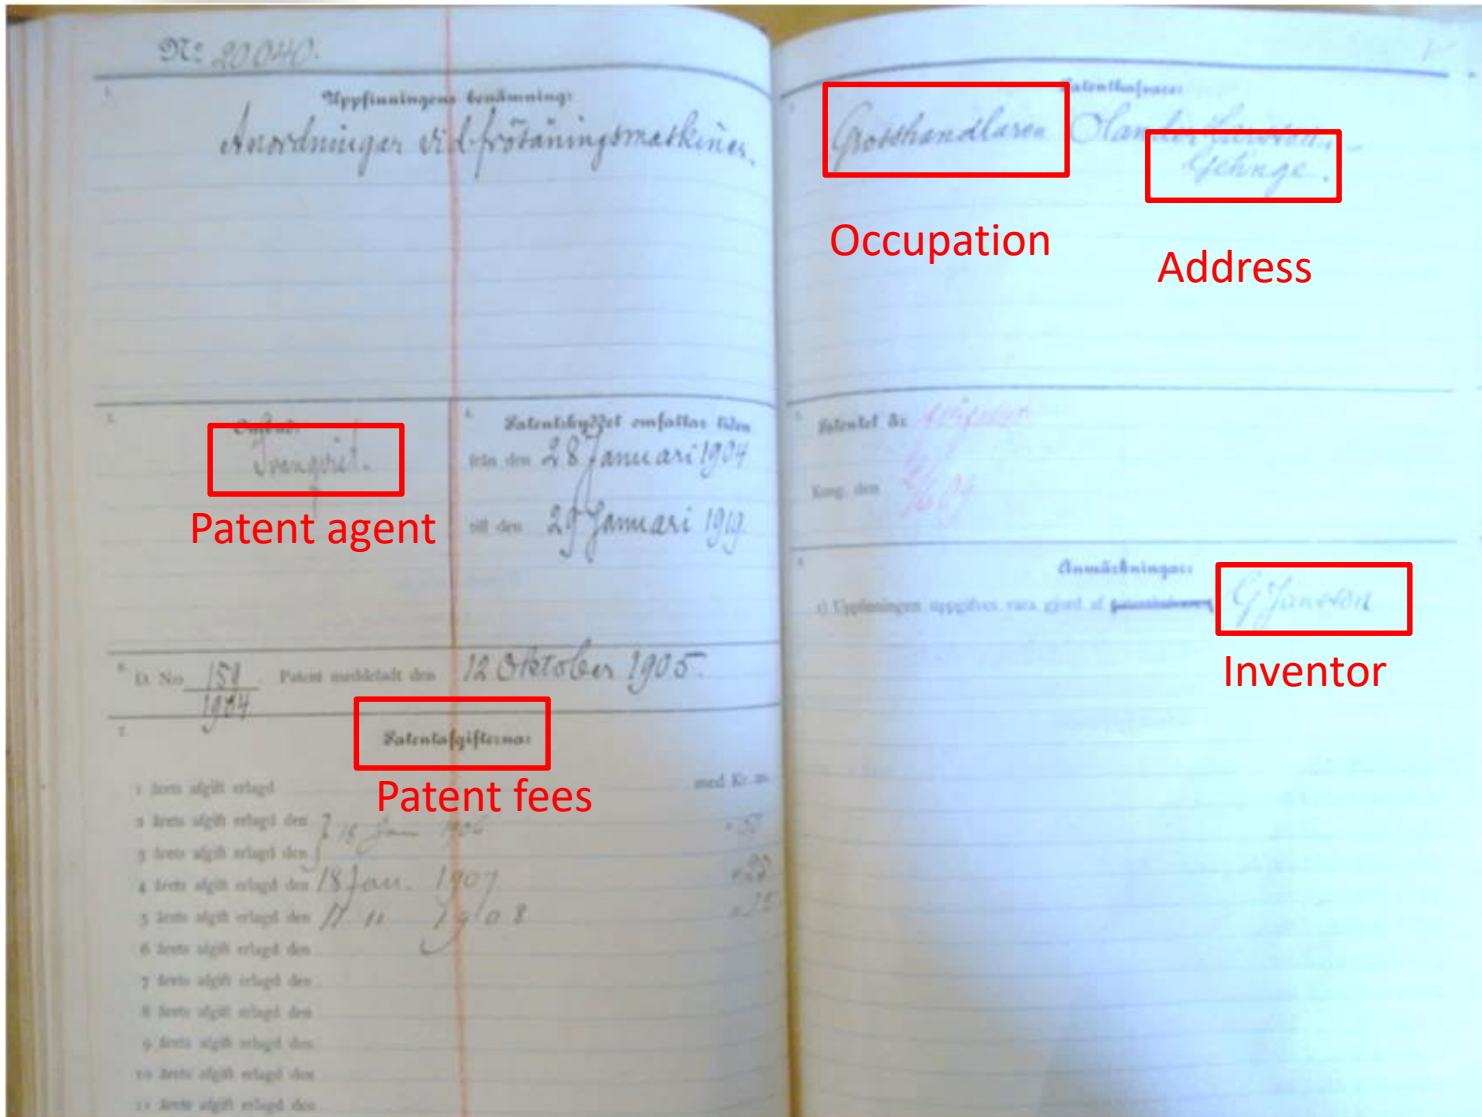 No 20040.
1.
Uppfinningens benämning:
Anordningar vid frösåningsmaskiner.
3.
Ombud:
Patent agent
4.
Patentskyddet omfattar tiden
från den 28 Januari 1904
till den 29 Januari 1919.
6.
D. No 159/1904 Patent meddeladt den 12 Oktober 1905.
7.
Patentafgifterna:
Patent fees
1 årets afgift erlagd med Kr.
2 årets afgift erlagd den 18 Jan 1906 " 50
3 årets afgift erlagd den
4 årets afgift erlagd den 18 Jan. 1907
5 årets afgift erlagd den 17 " 1908
6 årets afgift erlagd den
7 årets afgift erlagd den
8 årets afgift erlagd den
9 årets afgift erlagd den
10 årets afgift erlagd den
11 årets afgift erlagd den
Patenthafvare:
Grosshandlaren Olander Larsson
Getinge.
Occupation
Address
5.
Patentet är
Kung. den
Anmärkningar:
1) Uppfinningen uppgifves vara gjord af patenthafvaren G Jansson
Inventor